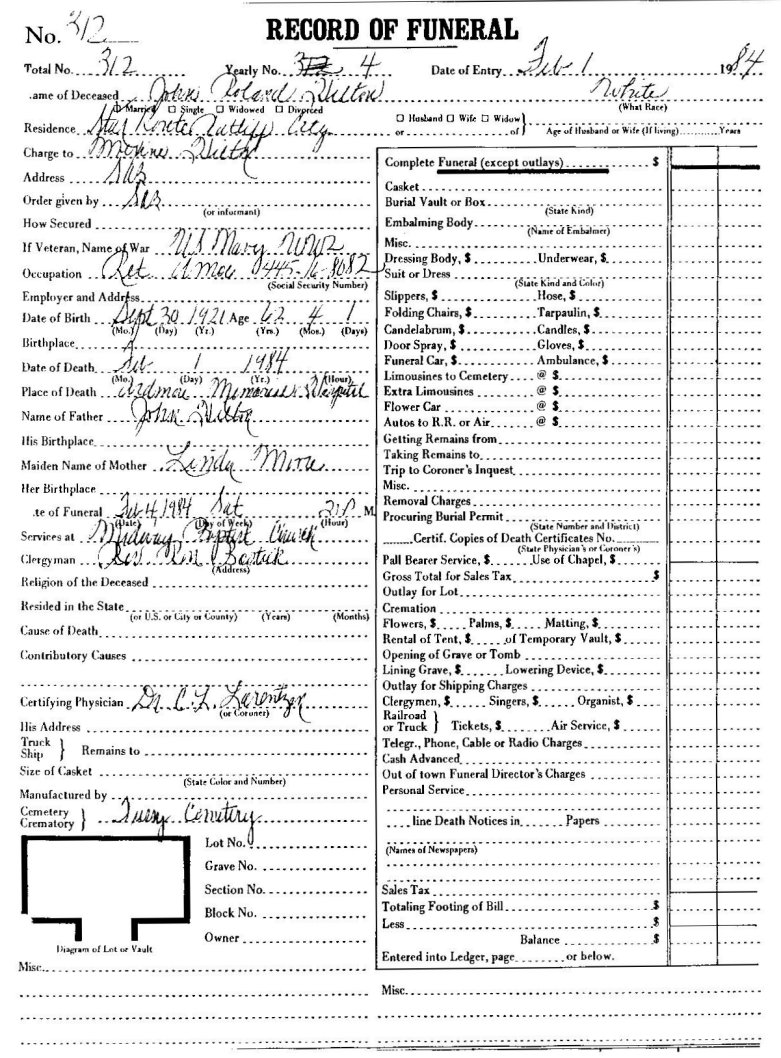 No. 312
RECORD OF FUNERAL
Total No. 312 Yearly No. 312 4 Date of Entry Feb 1 1984
.ame of Deceased John Roland Hilton White
Married ☐ Single ☐ Widowed ☐ Divorced (What Race)
Residence Star Route City ☐ Husband ☐ Wife ☐ Widow } or of Age of Husband or Wife (If living) Years
Charge to Hilton
Address
Order given by
(or informant)
How Secured
If Veteran, Name of War US Navy WW2
Occupation Ret
(Social Security Number)
Employer and Address
Date of Birth Sept 30 1921 Age 62 4 1
(Mo.) (Day) (Yr.) (Yrs.) (Mos.) (Days)
Birthplace
Date of Death Feb 1 1984
(Mo.) (Day) (Yr.) (Hour)
Place of Death Ardmore Memorial Hospital
Name of Father John Hilton
His Birthplace
Maiden Name of Mother Linda
Her Birthplace
.te of Funeral Feb 4 1984 Sat M
(Date) (Day of Week) (Hour)
Services at Midway Baptist Church
Clergyman Rev. Ron Bostick
(Address)
Religion of the Deceased
Resided in the State
(or U.S. or City or County) (Years) (Months)
Cause of Death
Contributory Causes
Certifying Physician Dr. C. L.
(or Coroner)
His Address
Truck Ship } Remains to
Size of Casket
(State Color and Number)
Manufactured by
Cemetery Crematory } Cemetery
Lot No.
Grave No.
Section No.
Block No.
Owner
Diagram of Lot or Vault
Misc.
Complete Funeral (except outlays) $
Casket
Burial Vault or Box
(State Kind)
Embalming Body
(Name of Embalmer)
Misc.
Dressing Body, $ Underwear, $
Suit or Dress
(State Kind and Color)
Slippers, $ Hose, $
Folding Chairs, $ Tarpaulin, $
Candelabrum, $ Candles, $
Door Spray, $ Gloves, $
Funeral Car, $ Ambulance, $
Limousines to Cemetery @ $
Extra Limousines @ $
Flower Car @ $
Autos to R.R. or Air @ $
Getting Remains from
Taking Remains to
Trip to Coroner's Inquest
Misc.
Removal Charges
Procuring Burial Permit
(State Number and District)
Certif. Copies of Death Certificates No.
(State Physician's or Coroner's)
Pall Bearer Service, $ Use of Chapel, $
Gross Total for Sales Tax $
Outlay for Lot
Cremation
Flowers, $ Palms, $ Matting, $
Rental of Tent, $ of Temporary Vault, $
Opening of Grave or Tomb
Lining Grave, $ Lowering Device, $
Outlay for Shipping Charges
Clergymen, $ Singers, $ Organist, $
Railroad or Truck } Tickets, $ Air Service, $
Telegr., Phone, Cable or Radio Charges
Cash Advanced
Out of town Funeral Director's Charges
Personal Service
line Death Notices in Papers
(Names of Newspapers)
Sales Tax
Totaling Footing of Bill $
Less $
Balance $
Entered into Ledger, page or below.
Misc.